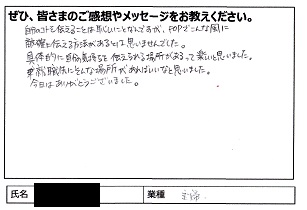 ぜひ、皆さまのご感想やメッセージをお教えください。
自分のコトを伝えることは難しいことなんですが、POPでこんな風に
敵確に伝える方法があるとは思いませんでした。
具体的に自分の気持ちを伝えられる場所があるって楽しいと思いました。
職場にそんな場所があればいいなと思いました。
今日はありがとうございました。
氏名
業種
主婦